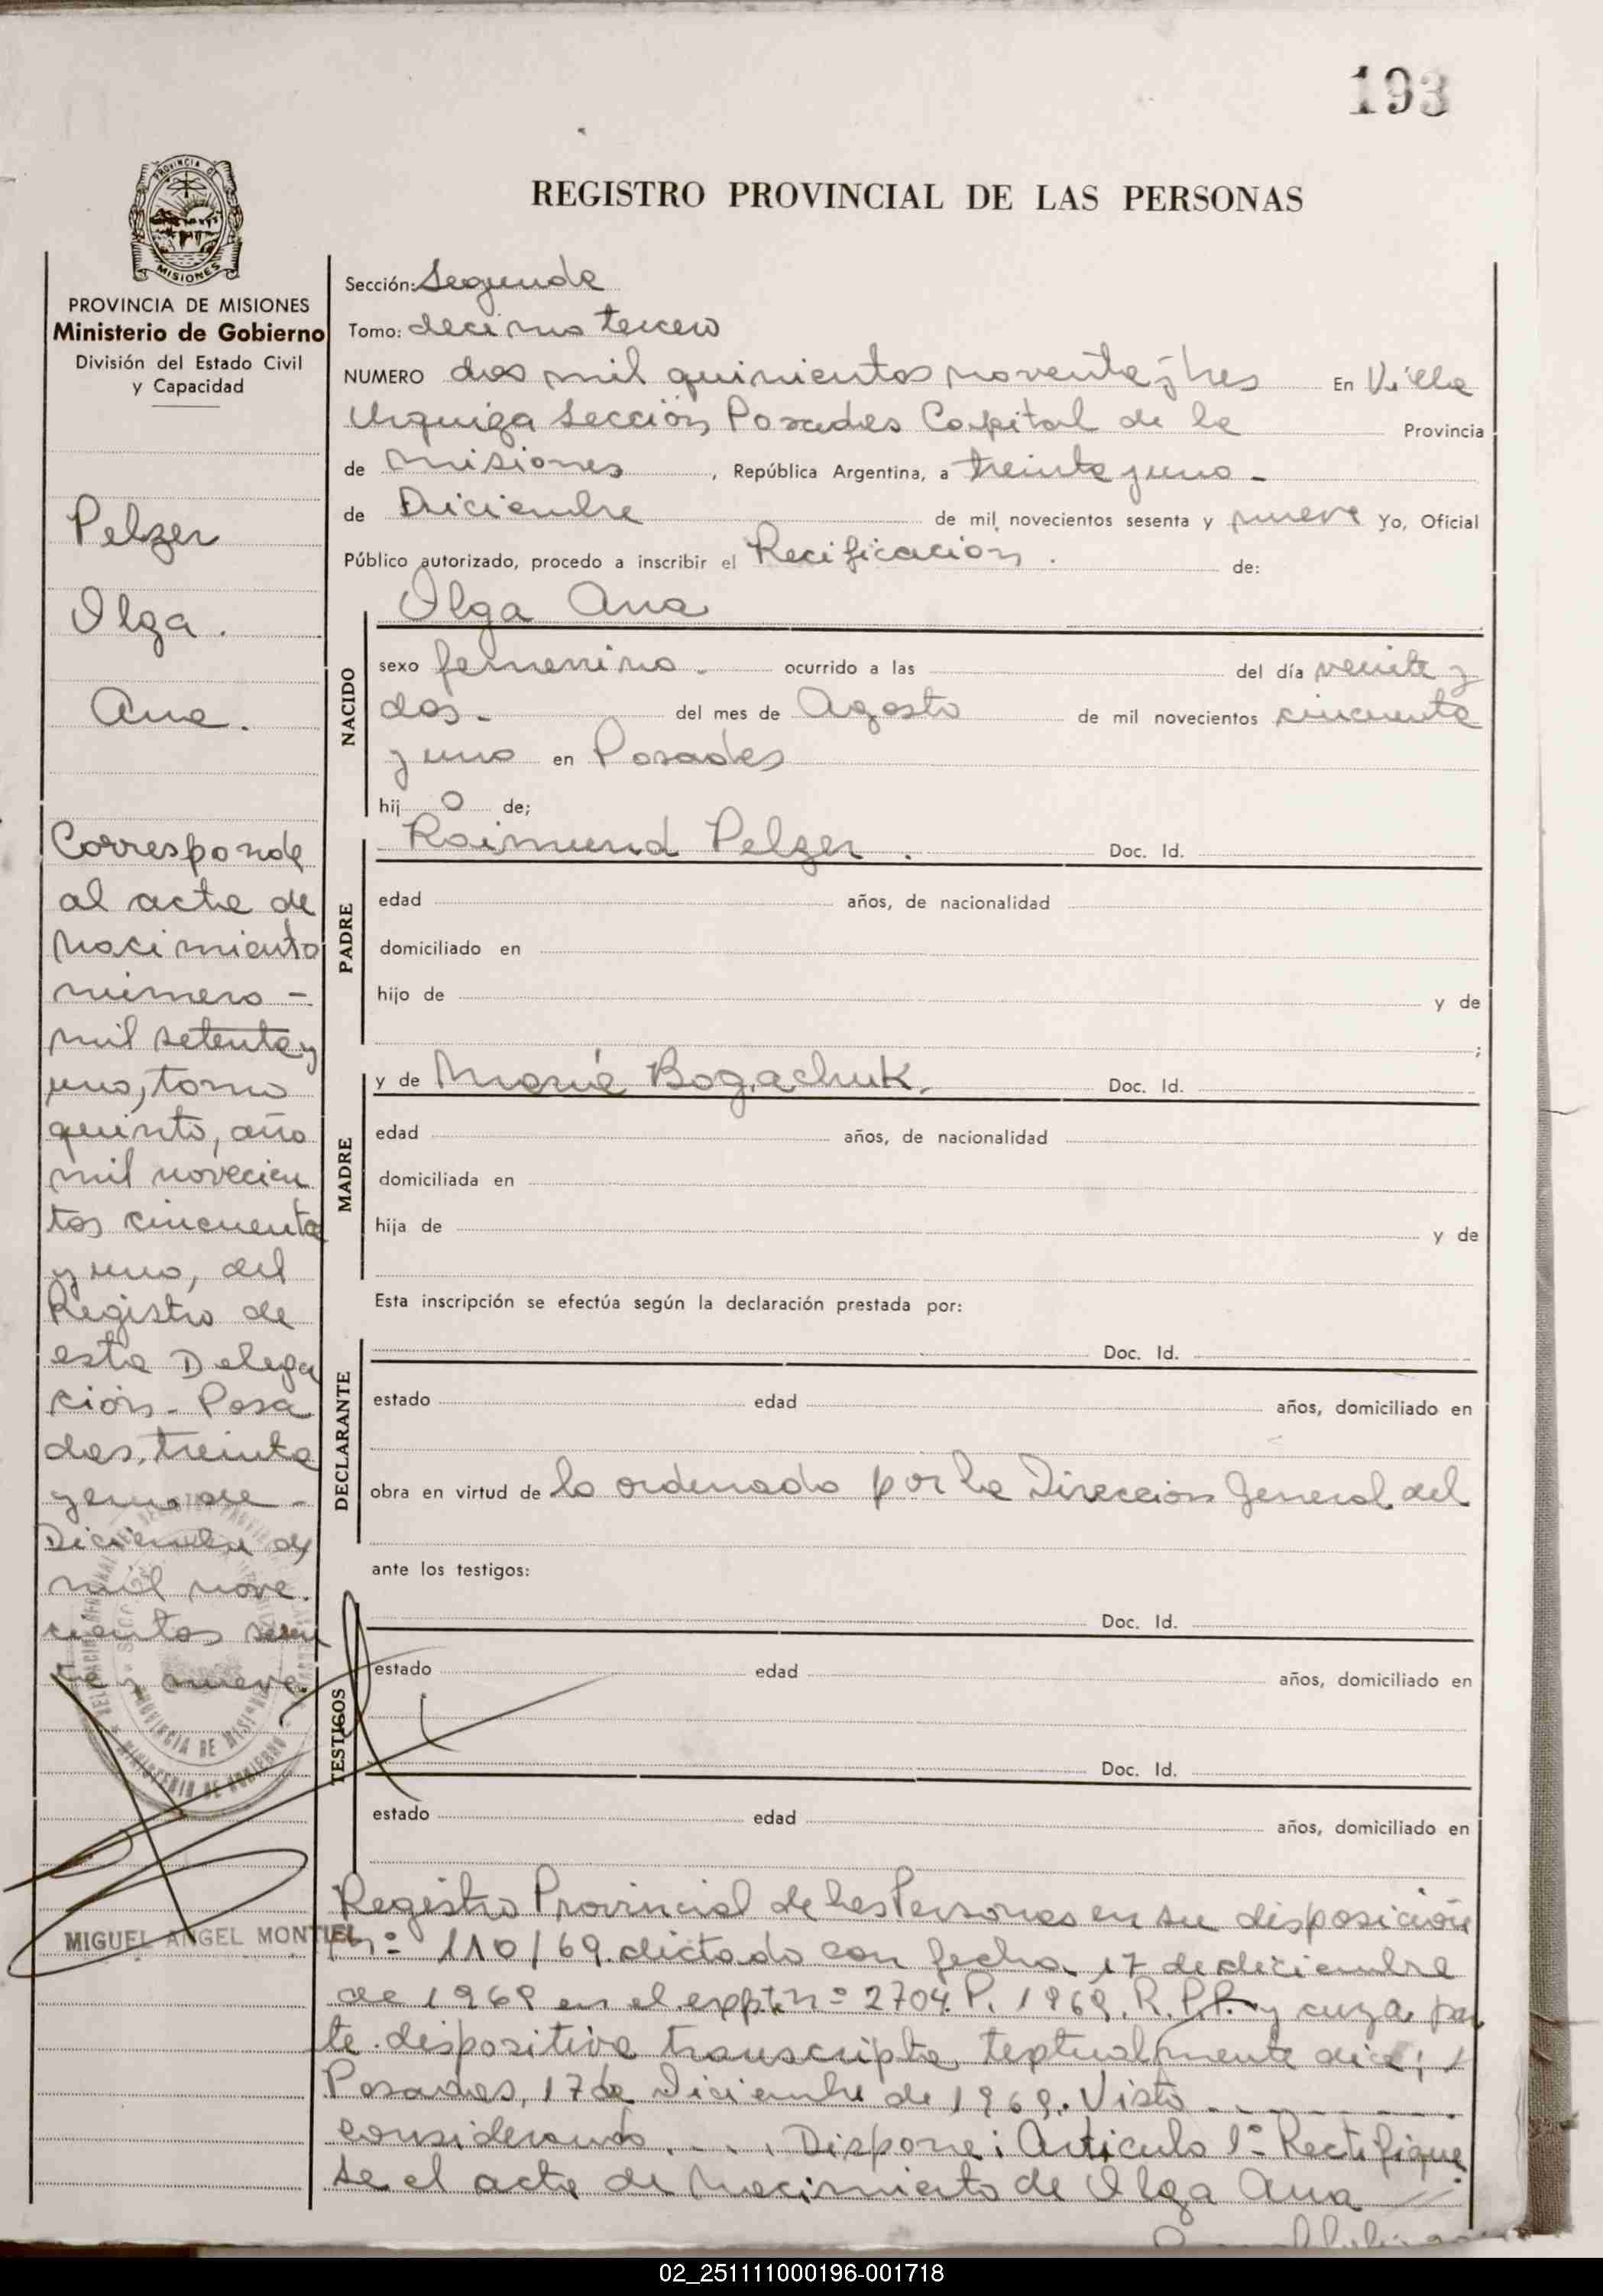 193
PROVINCIA DE
MISIONES
REGISTRO PROVINCIAL DE LAS PERSONAS
PROVINCIA DE MISIONES
Ministerio de Gobierno
División del Estado Civil
y Capacidad
Pelzer
Olga.
Ana.
Corresponde
al acta de
nacimiento
número -
mil setenta y
uno, tomo
quinto, año
mil novecien
tos cincuenta
y uno, del
Registro de
esta Delega
ción - Posa
das, treinta
y uno de -
Diciembre de
mil nove.
cientos sesen
ta y nueve.
PROVINCIA DE MISIONES
MINISTERIO DE GOBIERNO
MIGUEL ANGEL MONTIEL
Sección: Segunda
Tomo: decimo tercero
NUMERO dos mil quinientos noventa y tres En Villa
Urquiza Sección Posadas Capital de la Provincia
de Misiones, República Argentina, a treinta y uno -
de Diciembre de mil novecientos sesenta y nueve Yo, Oficial
Público autorizado, procedo a inscribir el Recificación. de:
Olga Ana
NACIDO
sexo femenino. ocurrido a las del día veinte y
dos - del mes de Agosto de mil novecientos cincuenta
y uno en Posadas
hij o de;
PADRE
Raimund Pelzer. Doc. Id.
edad años, de nacionalidad
domiciliado en
hijo de y de
;
MADRE
y de María Bogachuk. Doc. Id.
edad años, de nacionalidad
domiciliada en
hija de y de
Esta inscripción se efectúa según la declaración prestada por:
DECLARANTE
Doc. Id.
estado edad años, domiciliado en
obra en virtud de lo ordenado por la Dirección General del
ante los testigos:
TESTIGOS
Doc. Id.
estado edad años, domiciliado en
Doc. Id.
estado edad años, domiciliado en
Registro Provincial de las Personas en su disposición
nº 110/69. dictado con fecha 17 de diciembre
de 1969 en el expt. nº 2704. P. 1969. R.P.P. y cuya par
te dispositiva transcripta textualmente dice: /
Posadas, 17 de Diciembre de 1969. Visto . - - - - -
considerando. . . . . Dispone: Articulo 1º Rectifique
se el acta de nacimiento de Olga Ana
02_251111000196-001718